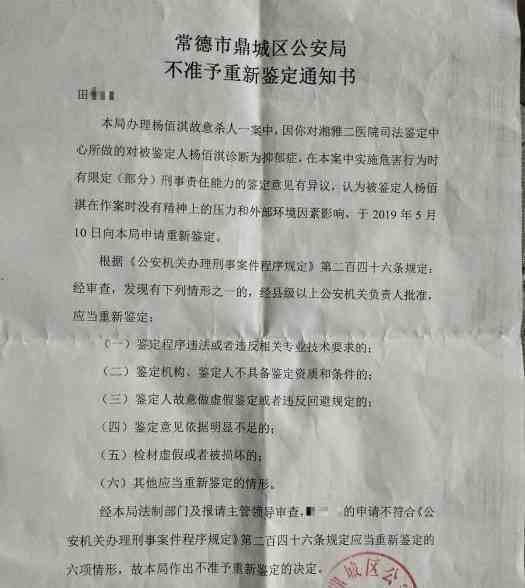 常德市鼎城区公安局
不准予重新鉴定通知书
田
本局办理杨佰淇故意杀人一案中，因你对湘雅二医院司法鉴定中
心所做的对被鉴定人杨佰淇诊断为抑郁症，在本案中实施危害行为时
有限定（部分）刑事责任能力的鉴定意见有异议，认为被鉴定人杨佰
淇在作案时没有精神上的压力和外部环境因素影响，于 2019 年 5 月
10 日向本局申请重新鉴定。
根据《公安机关办理刑事案件程序规定》第二百四十六条规定：
经审查，发现有下列情形之一的，经县级以上公安机关负责人批准，
应当重新鉴定：
（一）鉴定程序违法或者违反相关专业技术要求的；
（二）鉴定机构、鉴定人不具备鉴定资质和条件的；
（三）鉴定人故意做虚假鉴定或者违反回避规定的；
（四）鉴定意见依据明显不足的；
（五）检材虚假或者被损坏的；
（六）其他应当重新鉴定的情形。
经本局法制部门及报请主管领导审查，的申请不符合《公
安机关办理刑事案件程序规定》第二百四十六条规定应当重新鉴定的
六项情形，故本局作出不准予重新鉴定的决定。
鼎城区公安